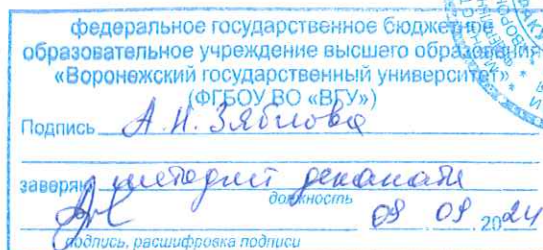 федеральное государственное бюджетное
образовательное учреждение высшего образования
«Воронежский государственный университет»
(ФГБОУ ВО «ВГУ»)
Подпись А.Н. Зяблова
заверяю методист деканата
должность
09 09 2024
подпись, расшифровка подписи